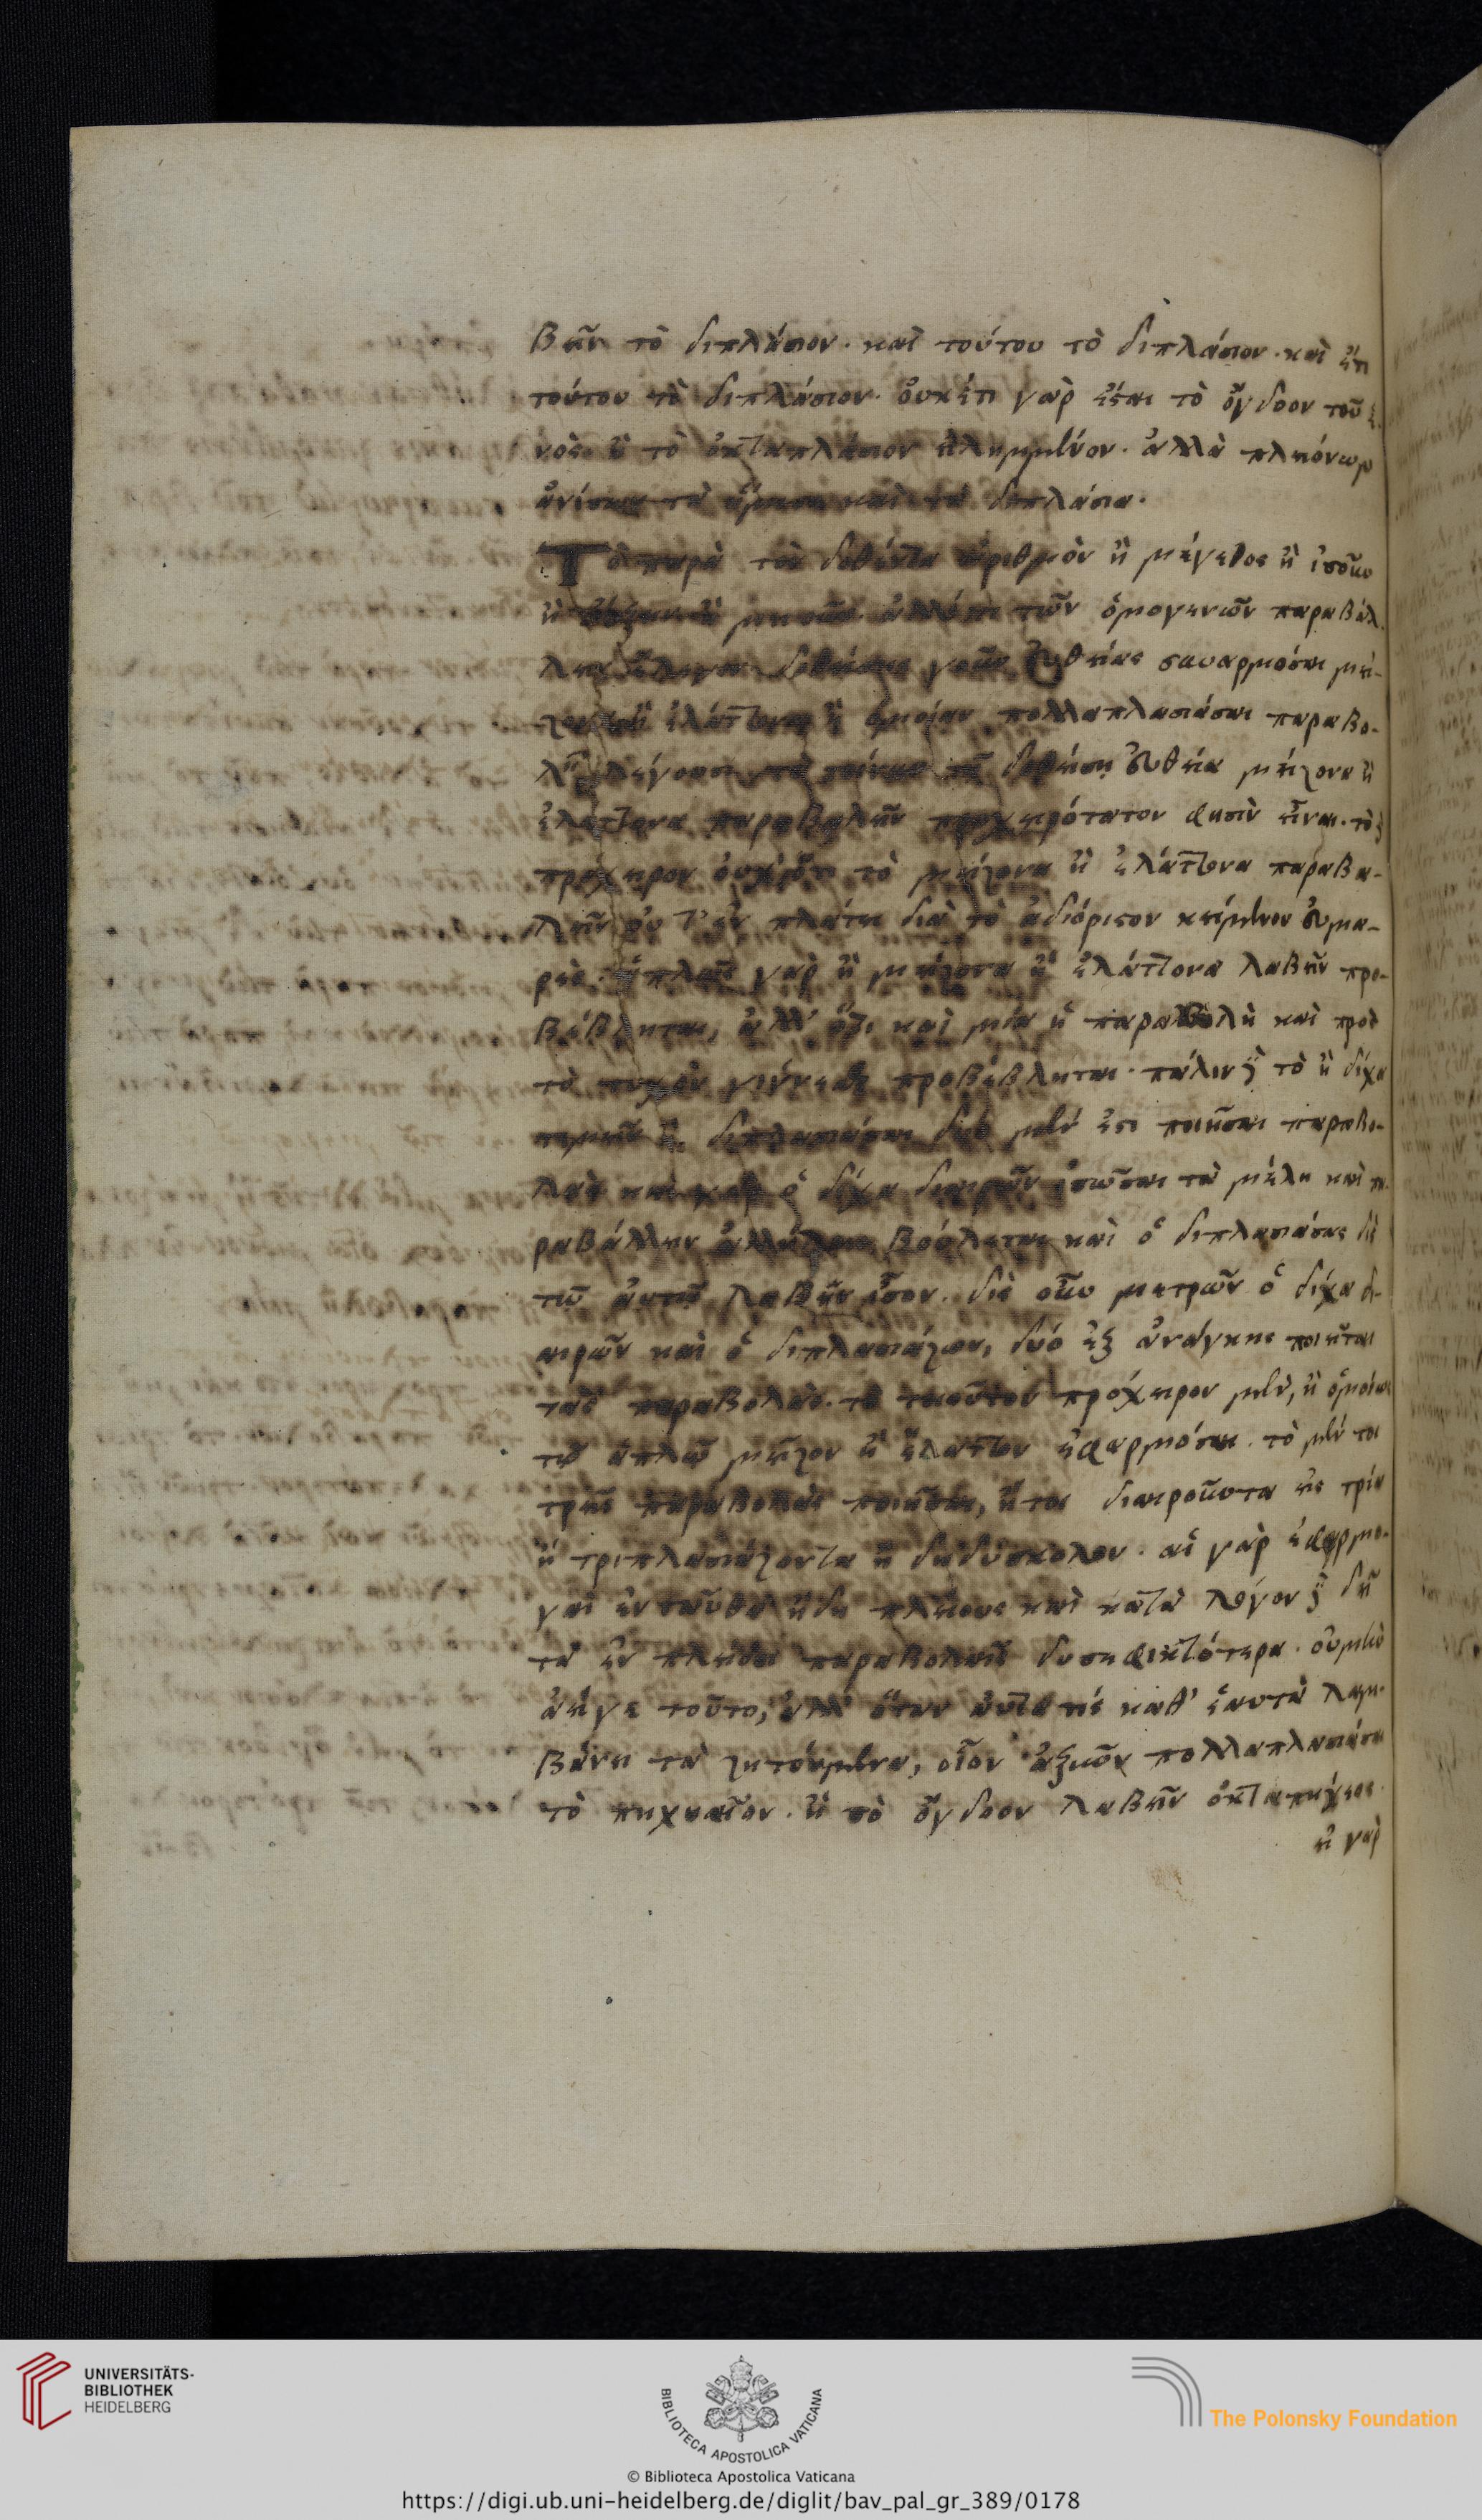 βεῖν τὸ διπλάσιον. καὶ τούτου τὸ διπλάσιον. καὶ ἔτι
τούτου τὸ διπλάσιον. οὐκέτι γὰρ ἔσται τὸ ὄγδοον τοῦ ἑ-
νὸς ἢ τὸ ὀκταπλάσιον εἰλημμένον. ἀλλὰ πλειόνων
ἀνίσων τὰ ἡμίση καὶ τὰ διπλάσια.
Τὸ παρὰ τὸν δοθέντα ἀριθμὸν ἢ μέγεθος ἢ
ἢ τῶν ὁμογενῶν παραβάλ-
λειν ἔλεγον. δοθείσης γοῦν εὐθείας συναρμόσαι μεί-
ζονα ἢ ἐλάττονα ἢ ὁμοίαν πολλαπλασιάσαι παραβο-
λὴν λέγουσι. τῇ δοθείσῃ εὐθείᾳ μείζονα ἢ
ἐλάττονα παραβαλεῖν προχειρότατον φησὶν εἶναι. τὸ
πρόχειρον οὐχ ὅτι τὸ μείζονα ἢ ἐλάττονα παραβα-
λεῖν ἐν πλάτει διὰ τὸ ἀδιόριστον κείμενον εὐμα-
ρές. ἁπλῶς γὰρ ἢ μείζονα ἢ ἐλάττονα λαβεῖν προ-
βέβληται, ἀλλ' ὅτι καὶ μία ἡ παραβολὴ καὶ πρὸς
τὸ γενέσθαι προβέβληται. πάλιν δὲ τὸ ἢ δίχα
τεμεῖν ἢ διπλασιάσαι δύο μέν ἐστι ποιῆσαι παραβο-
λάς καὶ γὰρ ὁ δίχα διαιρῶν ἰσῶσαι τὰ μέλη καὶ πα-
ραβάλλειν ἀλλήλοις βούλεται καὶ ὁ διπλασιάσας δὶς
τῷ αὐτῷ λαβεῖν ἴσον. δὶς οὖν μετρῶν ὁ δίχα δι-
αιρῶν καὶ ὁ διπλασιάζων, δύο ἐξ ἀνάγκης ποιεῖται
τὰς παραβολάς. τὸ τοιοῦτον πρόχειρον μὲν, ἢ ὁμοίως
τῷ ἁπλῶς μεῖζον ἢ ἔλαττον ἐφαρμόσαι. τὸ μέν τοι
τρεῖς παραβολὰς ποιῆσαι, ἤτοι διαιροῦντα εἰς τρία
ἢ τριπλασιάζοντα ἤδη δύσκολον. αἱ γὰρ ἐφαρμο-
γαὶ ἐνταῦθα ἤδη πλείους καὶ κατὰ λόγον δὲ δὴ
τὰ ἐν πλήθει παραβολαῖς δυσεφικτότερα. οὐ μὲν
ἀεί γε τοῦτο, ἀλλ' ὅταν αὐτά τις καθ' ἑαυτὰ λαμ-
βάνει τὰ ζητούμενα, οἷον ἀξιῶν πολλαπλασιάσαι
τὸ πηχυαῖον. ἢ τὸ ὄγδοον λαβεῖν ὀκταπήχεος.
εἰ γὰρ
UNIVERSITÄTS-
BIBLIOTHEK
HEIDELBERG
BIBLIOTECA APOSTOLICA VATICANA
The Polonsky Foundation
© Biblioteca Apostolica Vaticana
https://digi.ub.uni-heidelberg.de/diglit/bav_pal_gr_389/0178